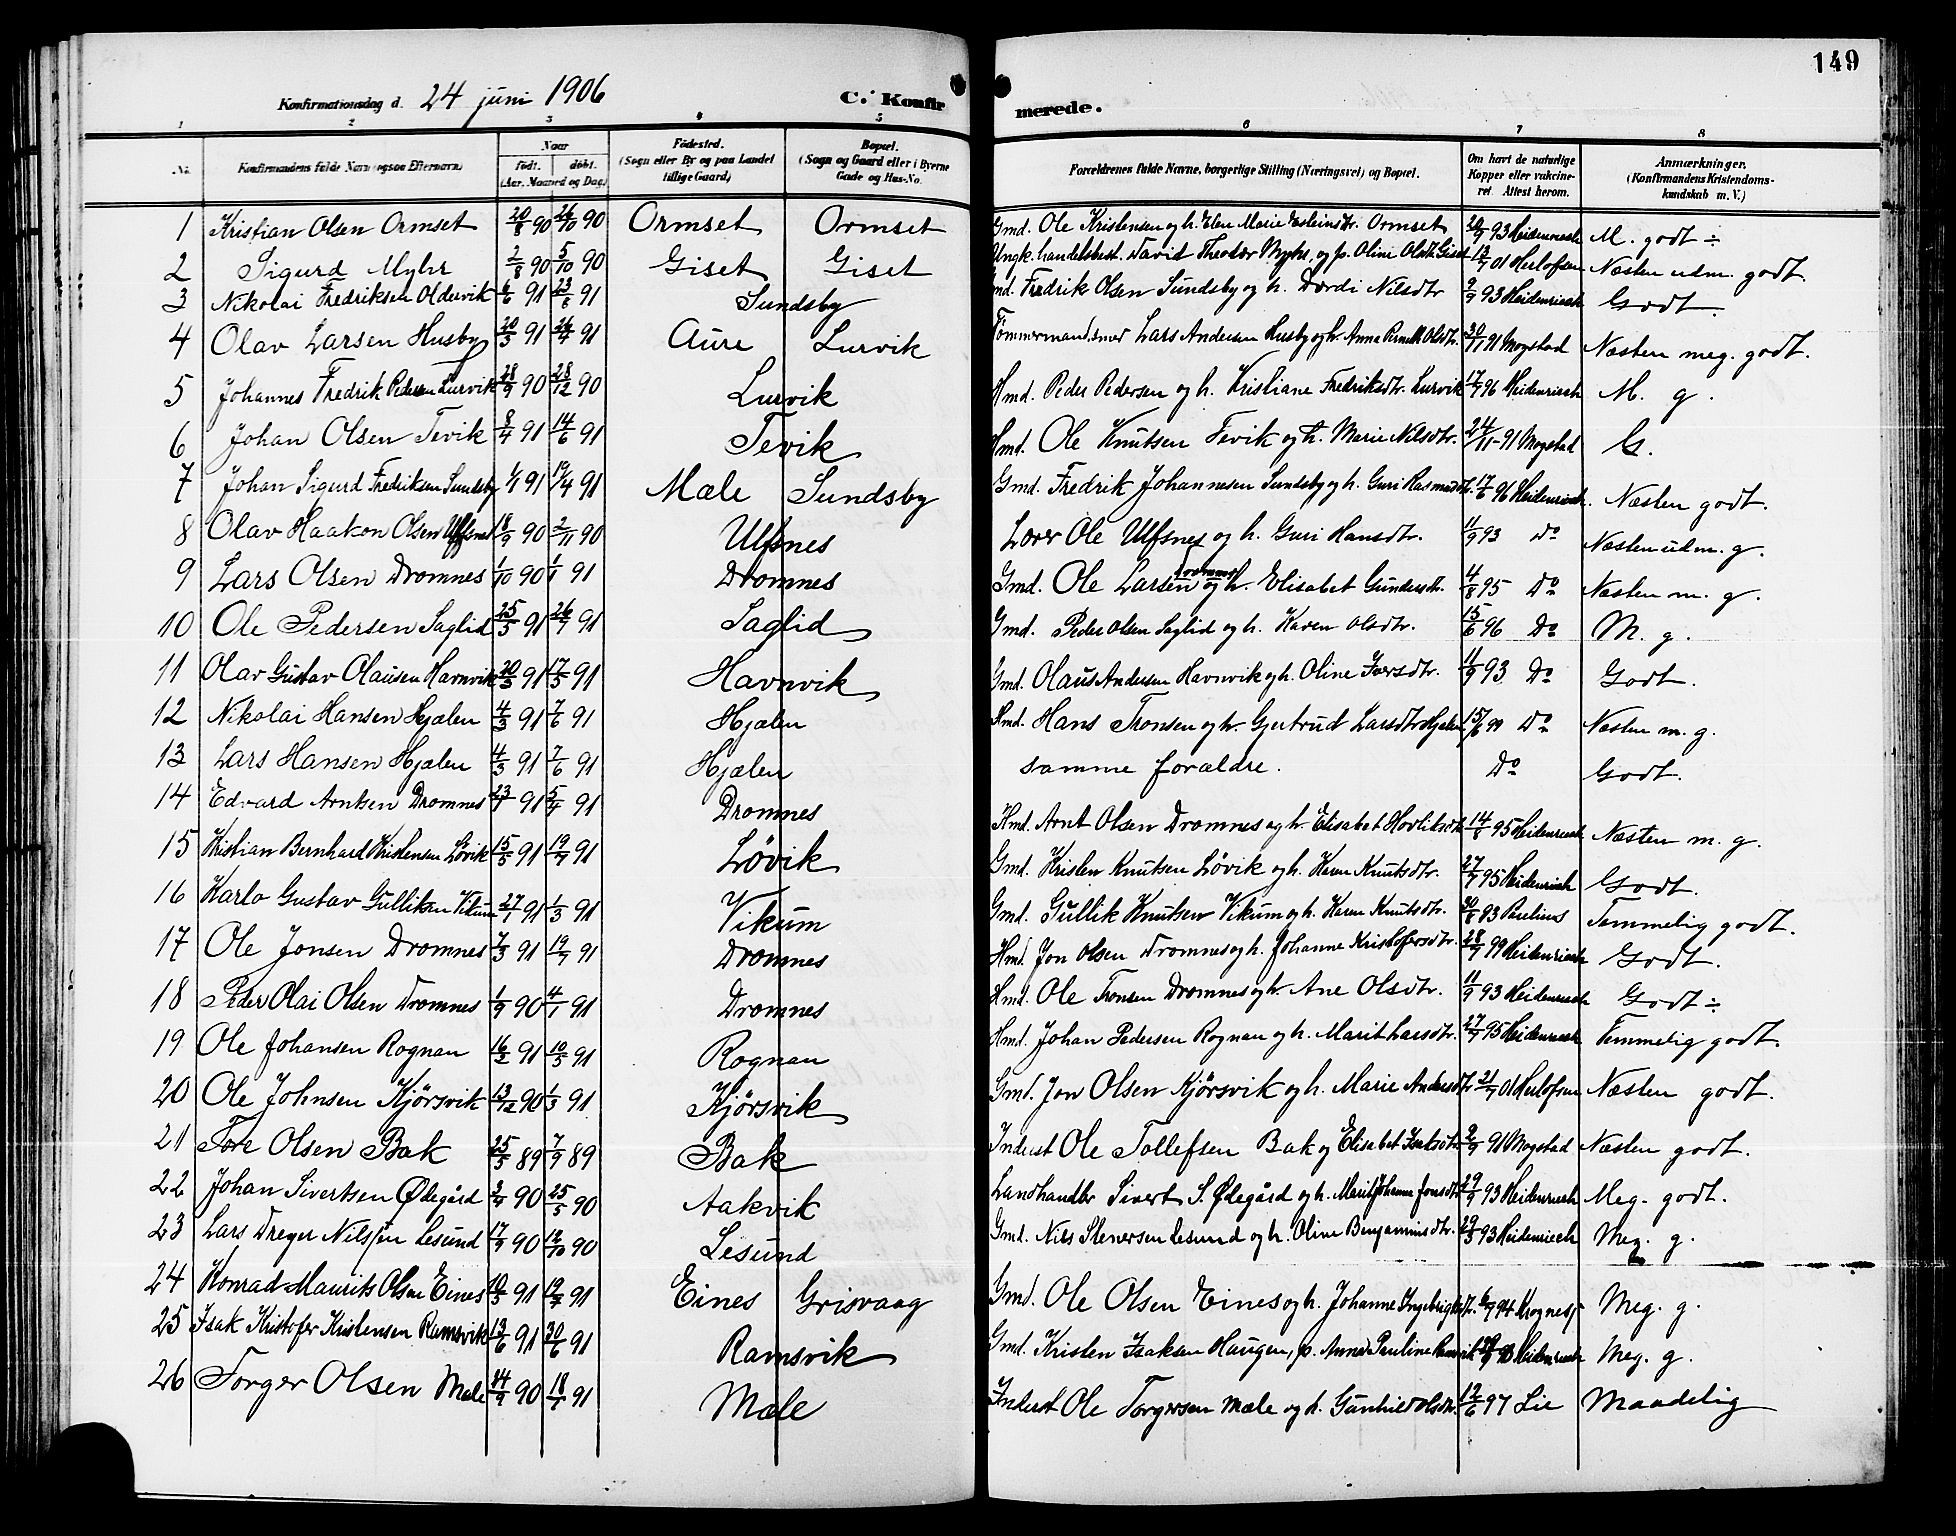 149
Konfirmationsdag d. 24 juni 1906 C. Konfirmerede.
1 2 3 4 5 6 7 8
No. Konfirmandens fulde Navn (ogsaa Efternavn) Naar født. døbt. (Aar, Maaned og Dag) Fødested. (Sogn eller By og paa Landet tillige Gaard) Bopæl. (Sogn og Gaard eller i Byerne Gade og Hus-No. Forældrenes fulde Navne, borgerlige Stilling (Næringsvei) og Bopæl. Om havt de naturlige Kopper eller vakcineret. Attest herom. Anmærkninger. (Konfirmandens Kristendomskundskab m. V.)
1 Kristian Olsen Ormset 20/8 90 26/10 90 Ormset Ormset Gmd. Ole Kristensen og h. Elen Marie Ormset 93 Heidenreich M. godt ÷
2 Sigurd Myhr 2/8 90 5/10 90 Giset Giset Ungk. handelsbest. David Theodor Myhr, og p. Oline Olsdt Giset 13/7 01 Herlofsen Næsten udm. godt.
3 Nikolai Fredriksen Oldervik 6/6 91 23/8 91 Sundsby Gmd. Fredrik Olsen Sundsby og h. Dordi Nilsdtr 9/9 93 Heidenreich Godt.
4 Olav Larsen Husby 20/3 91 26/4 91 Aure Lurvik Tømmermand, smed Lars Andersen Husby og h. Anna Olsdtr. 30/11 91 Mogstad Næsten meg. godt.
5 Johannes Fredrik Pedersen Lurvik 28/9 90 28/12 90 Lurvik Hmd. Peder Pedersen og h. Kristiane Fredriksdtr. Lurvik 17/9 96 Heidenreich M. g.
6 Johan Olsen Tevik 8/4 91 14/6 91 Tevik Hmd. Ole Knutsen Tevik og h. Marie Nilsdtr. 24/11-91 Mogstad G.
7 Johan Sigurd Fredriksen Sundsby 1/1 91 19/4 91 Mæle Sundsby Gmd. Fredrik Johannesen Sundsby og h. Guri Rasmusdtr. 17/6 96 Heidenreich. Næsten godt.
8 Olav Haakon Olsen Ulfsnes 18/9 90 2/11 90 Ulfsnes Lærer Ole Ulfsnes og h. Guri Hansdtr. 11/9 93 Do Næsten udm. g.
9 Lars Olsen Dromnes 1/10 90 1/1 91 Dromnes Gmd. Ole Larsen Dromnes og h. Elisabet Gundersdtr. 4/8 95 Do Næsten m. g.
10 Ole Pedersen Saglid 25/5 91 26/7 91 Saglid Gmd. Peder Olsen Saglid og h. Karen Olsdtr. 15/6 96 Do M. g.
11 Olav Gustav Olausen Havnvik 20/3 91 17/5 91 Havnvik Gmd. Olaus Andersen Havnvik og h. Oline Iversdtr. 11/9 93 Do Godt.
12 Nikolai Hansen Hjælen 4/3 91 7/6 91 Hjælen Hmd. Hans Tronsen og h. Gjertrud Larsdtr Hjælen 15/6 99 Do Næsten m. g.
13 Lars Hansen Hjælen 4/3 91 7/6 91 Hjælen samme forældre. Do Godt.
14 Edvard Arntsen Dromnes 23/1 91 5/4 91 Dromnes Hmd. Arnt Olsen Dromnes og h. Elisabet 14/8 95 Heidenreich Næsten m. g.
15 Kristian Bernhard Kristensen Løvik 15/5 91 19/7 91 Løvik Gmd. Kristen Knutsen Løvik og h. Karen Knutsdtr. 27/7 95 Heidenreich Godt.
16 Karlo Gustav Gulliksen Vikum 27/1 91 1/3 91 Vikum Gmd. Gullik Knutsen Vikum og h. Karen Knutsdtr. 30/8 93 Parelius Temmelig godt.
17 Ole Jonsen Dromnes 7/3 91 19/7 91 Dromnes Hmd. Jon Olsen Dromnes og h. Johanne Kristofersdtr. 28/7 99 Heidenreich Godt.
18 Peder Olai Olsen Dromnes 1/9 90 4/1 91 Dromnes Hmd. Ole Tronsen Dromnes og h. Ane Olsdtr. 11/9 93 Heidenreich Godt ÷
19 Ole Johansen Rognan 16/2 91 10/5 91 Rognan Hmd. Johan Pedersen Rognan og h. Marit Larsdtr 27/7 95 Heidenreich Temmelig godt.
20 Ole Johnsen Kjørsvik 13/12 90 1/3 91 Kjørsvik Gmd. Jon Olsen Kjørsvik og h. Marie Andersdtr 21/7 01 Herlofsen Næsten godt.
21 Tore Olsen Bak 25/5 89 7/9 89 Bak Inderst Ole Tollefsen Bak og Elisabet 2/9 91 Mogstad Næsten godt.
22 Johan Sivertsen Ødegård 90 25/5 90 Aakvik Landhandler Sivert S. Ødegård og h. Marit Johanne Jonsdtr 29/9 93 Heidenreich Meg. godt.
23 Lars Dreyer Nilssen Lesund 17/9 90 12/10 90 Lesund Gmd. Nils Stenersen Lesund og h. Oline Benjaminsdtr. 93 Heidenreich Meg. g.
24 Konrad Maurits Olsen Eines 10/5 91 91 Eines Grisvaag Gmd. Ole Olsen Eines og h. Johanne Ingebrigtsdtr. 94 Meg. g.
25 Isak Kristofer Kristensen Ramsvik 13/6 91 30/6 91 Ramsvik Gmd. Kristen Isaksen Haugen, p. Anne Pauline Ramsvik Heidenreich Meg. g.
26 Torger Olsen Mæle 14/9 90 18/1 91 Mæle Inderst Ole Torgersen Mæle og h. Gunhild Olsdtr. 12/6 97 Lie Maadelig